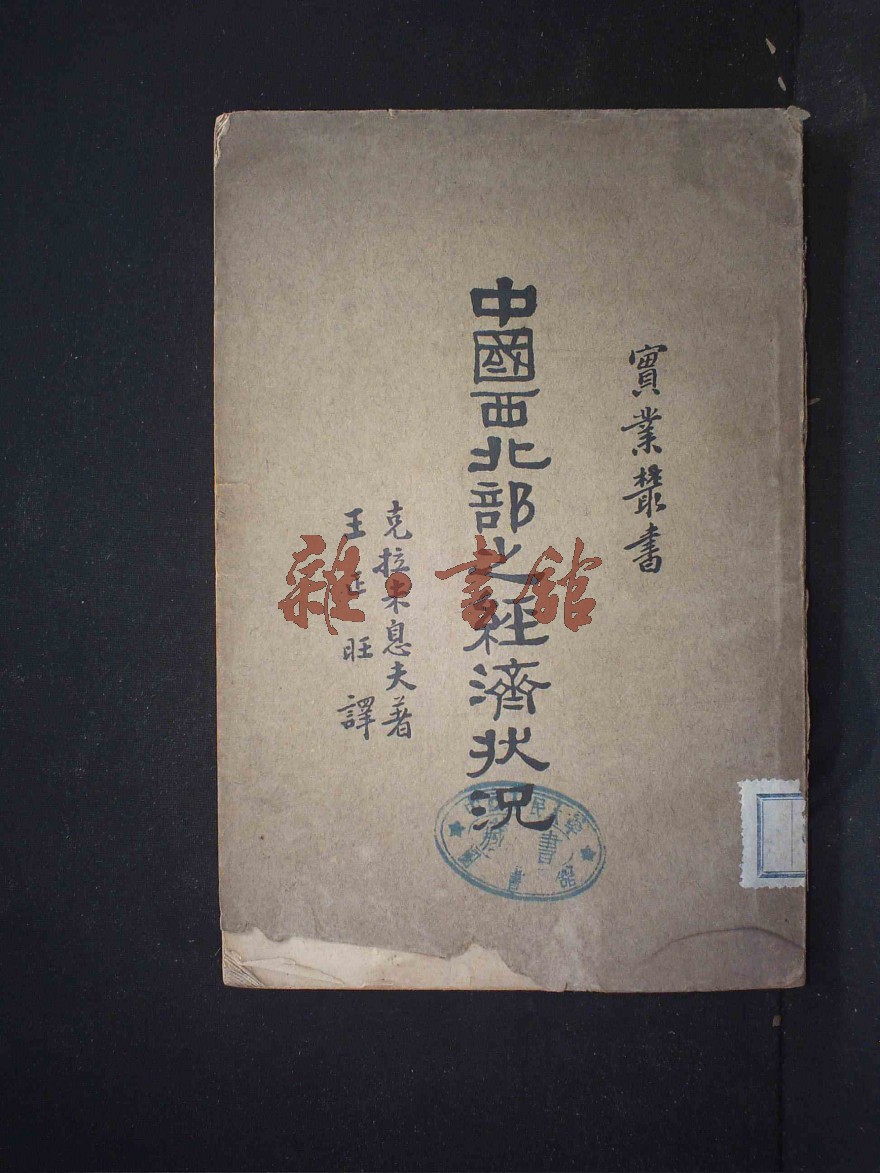 實業叢書
中國西北部之經濟狀況
克拉米息夫著
王正旺譯
雜·書館